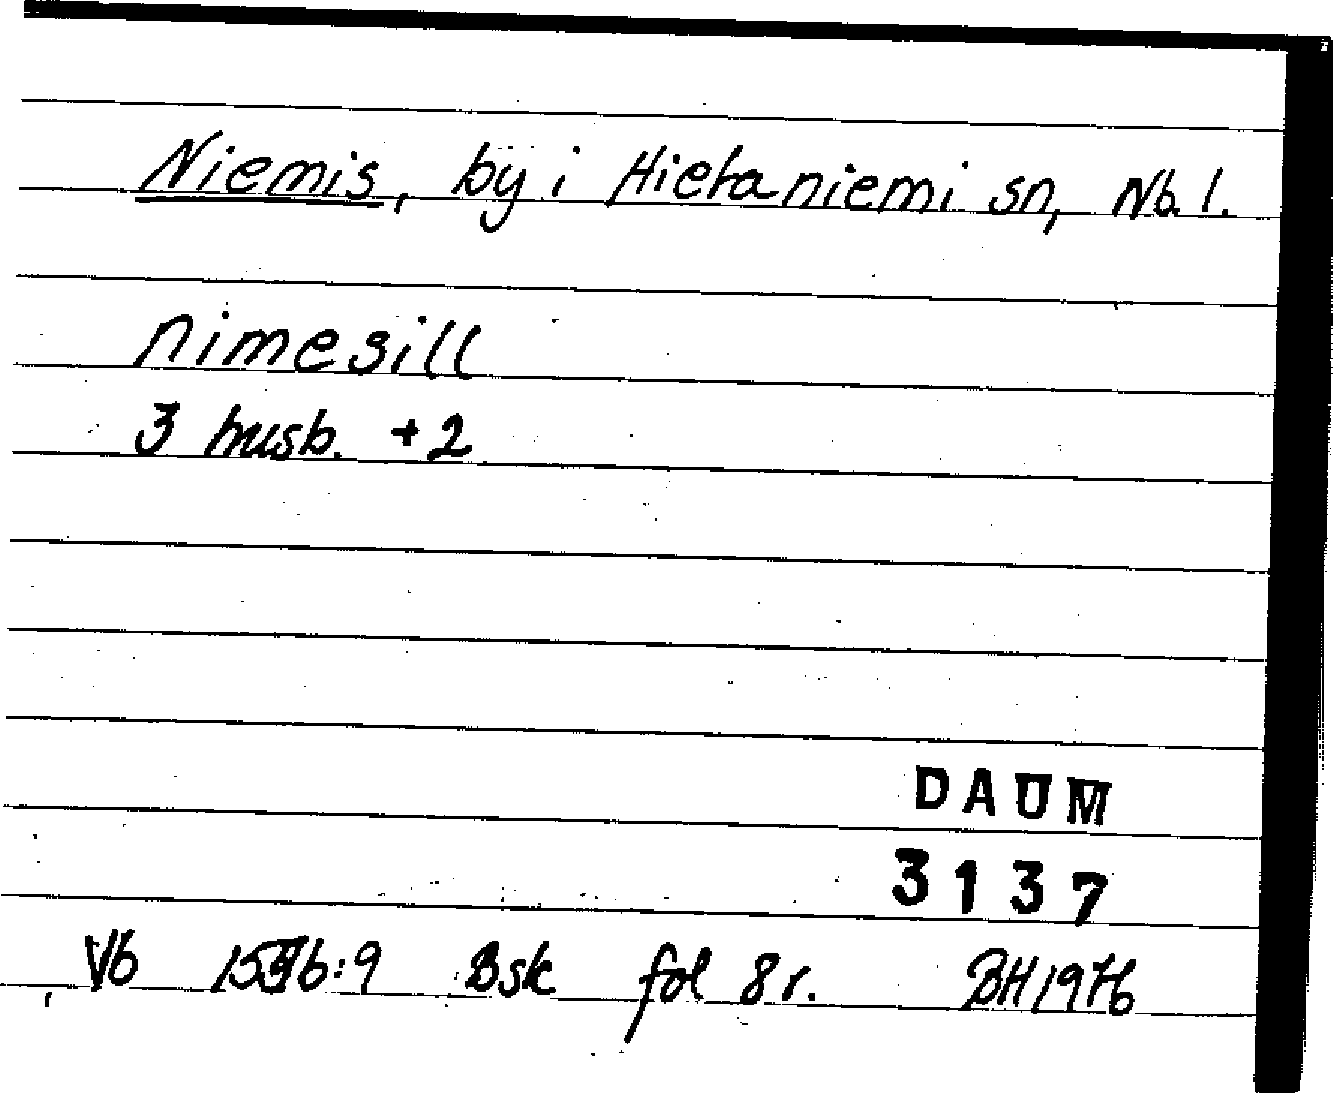 Niemis, by i Hietaniemi sn, Nb. l.
nimesill
3 husb. +2
DAUM
3137
Vb :9 Bsk fol 8 r. BH 1976